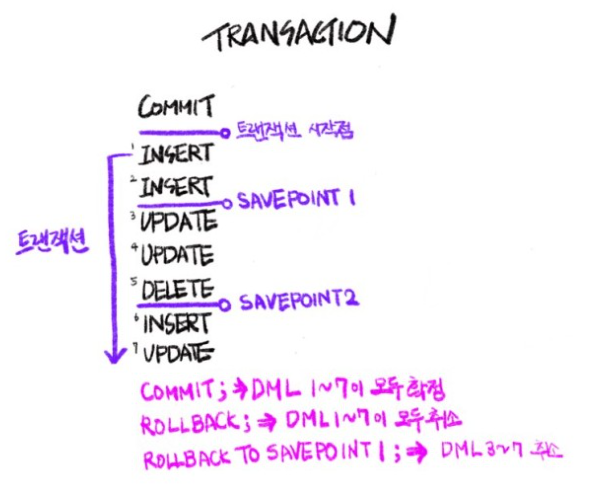 TRANSACTION
COMMIT
트랜잭션 시작점
1 INSERT
2 INSERT
SAVEPOINT 1
3 UPDATE
4 UPDATE
트랜잭션
5 DELETE
SAVEPOINT2
6 INSERT
7 UPDATE
COMMIT; ⇒ DML 1~7이 모두 확정
ROLLBACK; ⇒ DML 1~7이 모두 취소
ROLLBACK TO SAVEPOINT 1; ⇒ DML 3~7 취소